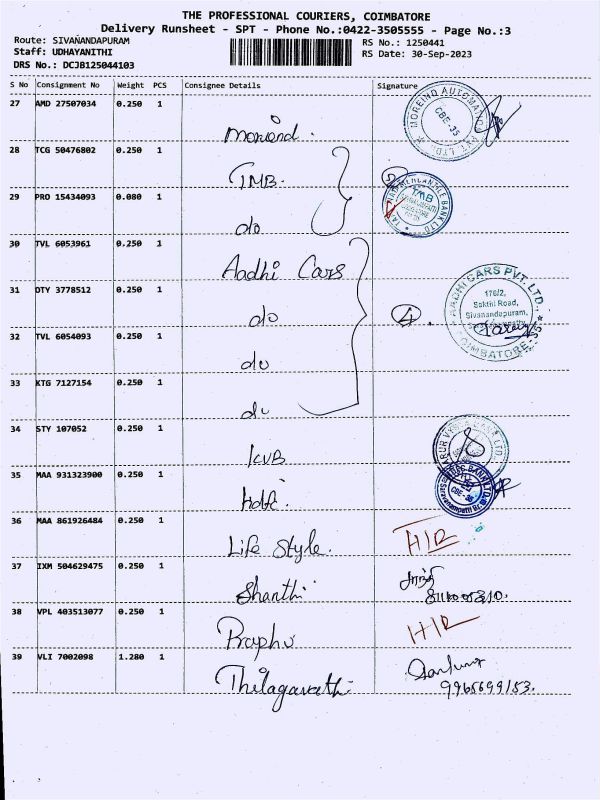 THE PROFESSIONAL COURIERS, COIMBATORE
Delivery Runsheet - SPT - Phone No.:0422-3505555 - Page No.:3
Route: SIVANANDAPURAM
Staff: UDHAYANITHI
DRS No.: DCJB125044103
RS No.: 1250441
RS Date: 30-Sep-2023
S No Consignment No Weight PCS Consignee Details Signature
27 AMD 27507034 0.250 1
MOREIND AUTOMA PVT. LTD. CBE-35
28 TCG 50476802 0.250 1
TMB.
29 PRO 15434093 0.080 1
MERCANTILE BANK LTD TMB
do
30 TVL 6053961 0.250 1
Aadhi Cars
31 DTY 3778512 0.250 1
do
4.
AADHI CARS PVT. LTD.,
176/2,
Sakthi Road,
Sivanandapuram,
COIMBATORE-35
32 TVL 6054093 0.250 1
do
33 KTG 7127154 0.250 1
do
34 STY 107052 0.250 1
KVB
35 MAA 931323900 0.250 1
Hdfc
36 MAA 861926484 0.250 1
Life Style.
HIR
37 IXM 504629475 0.250 1
Shanthi
38 VPL 403513077 0.250 1
Praphu
HIR
39 VLI 7002098 1.280 1
Thilagavathi
9965699153.